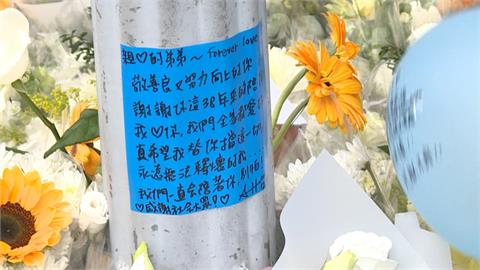 超♡的弟弟~ Forever love
敬善良又努力向上的你
謝謝你這38年來的陪
我♡你,我們全家都愛
真希望我替你擋這一切
永遠無法釋懷的我...
我們一直會陪著你 別怕
♡感謝社會大眾!♡